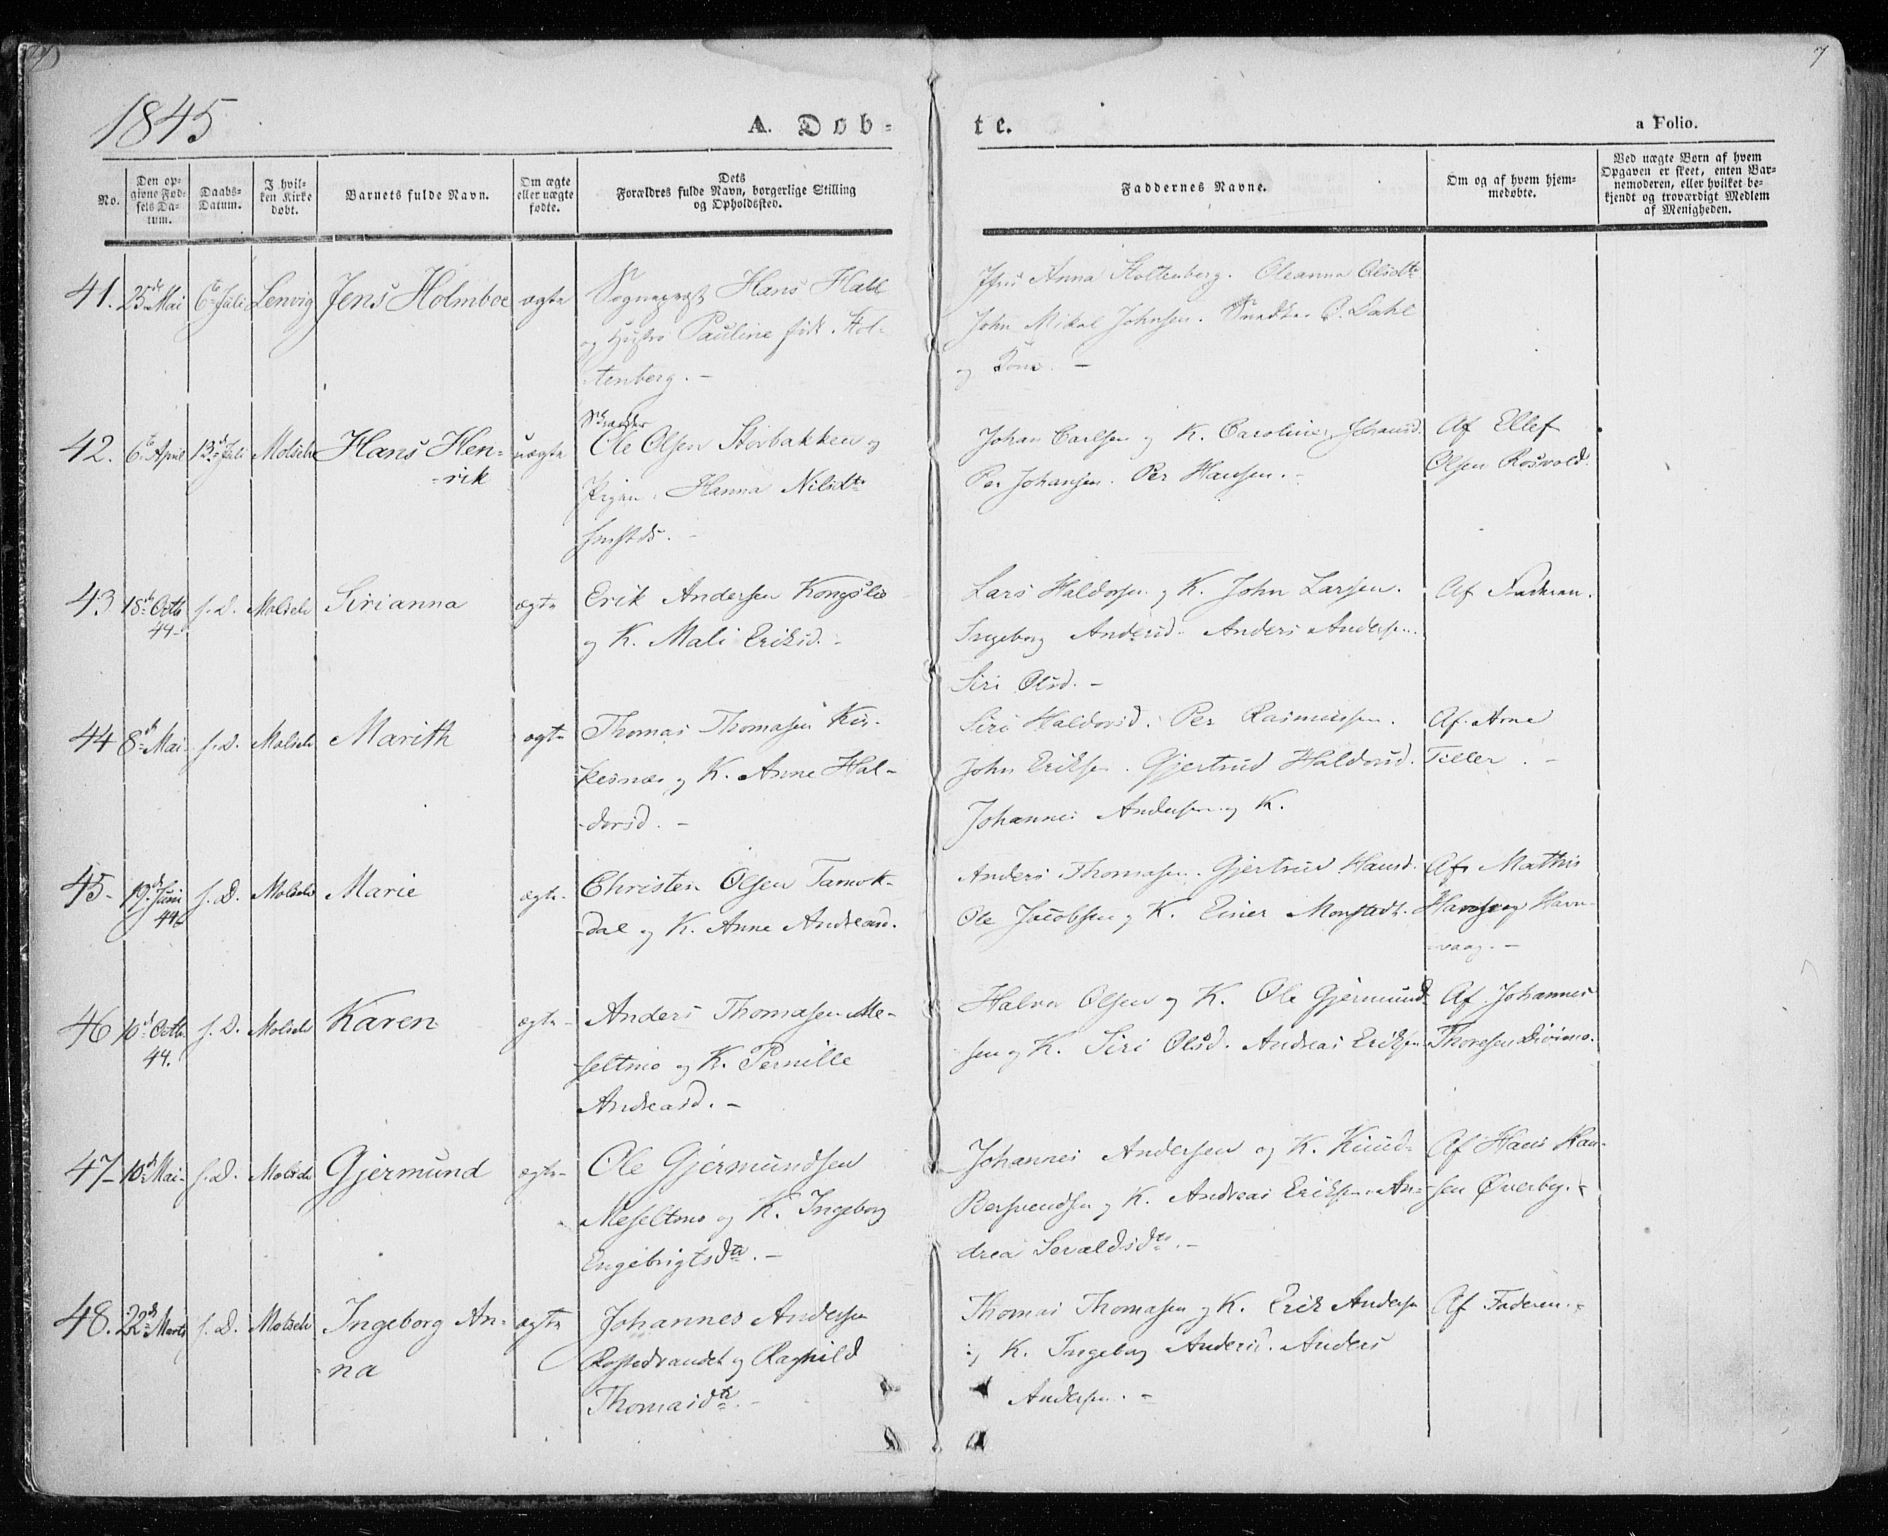 7
1845
A. Døb-
te.
a Folio.
No.
Den op-
givne Fød-
sels Da-
tum.
Daabs-
Datum.
I hvil-
ken Kirke
døbt.
Barnets fulde Navn.
Om ægte
eller uægte
fødte.
Dets
Forældres fulde Navn, borgerlige Stilling
og Opholdssted.
Faddernes Navne.
Om og af hvem hjem-
medøbte.
Ved uægte Børn af hvem
Opgaven er skeet, enten Bar-
nemoderen, eller hvilket be-
kjendt og troværdigt Medlem
af Menigheden.
41. 25de Mai 6te Juli Lenvig Jens Holmboe ægte
Sognepræst Hans Hall
og Hustro Pauline fød. Stol-
tenberg. -
Jfru Anna Stoltenberg. Oleanna Olsdtr
John Mikal Johnsen. P. Dahl
og Kone. -
42. 6te April 13de Juli Molselv Hans Hen-
-rik
uægte
Ole Olsen Storbakken og
Pigen Hanna Nilsdtr
sonstds. -
Johan Carlsen og K. Caroline Johansd.
Per Johansen. Per Hansen. -
Af Ellef
Olsen Rosvold.
43. 18de Octbr
44-
s. D. Molselv Sirianna ægte
Erik Andersen Kongslie
og K. Mali Eriksd. -
Lars Haldorsen og K. John Larsen.
Ingeborg Andersd. Anders Andersen.
Siri Olsd. -
Af Faderen.
44 8de Mai s. D. Molselv Marith ægte
Thomas Thomasen Kir-
kesnæs og K. Anne Hal-
-dorsd. -
Siri Haldorsd. Per Rasmussen.
John Eriksen. Gjertrud Haldorsd.
Johannes Andersen og K.
Af Arne
Tiller. -
45- 19de Juni
44
s. D. Molselv Marie ægte-
Christen Olsen Tamok-
-dal og K. Anne Andreasd.
Anders Thomasen. Gjertrud Hansd.
Ole Jacobsen og K. Einer Monstadt.
Af Mathis
Hansen Havn-
-vaag. -
46 10de Octbr
44.
s. D. Molselv Karen ægte-
Anders Thomasen Me-
seltmo og K. Pernille
Andreasd. -
Halvor Olsen og K. Ole Gjermund-
sen og K. Siri Olsd. Andreas Eriksen
Af Johannes
Thoresen
47- 10de Mai- s. D. Molselv Gjermund ægte-
Ole Gjermundsen
Meseltmo og K. Ingeborg
Engebrigtsdtr. -
Johannes Andersen og K. Knud
og K. Andreas Eriksen. An-
drea Sevaldsdtr. -
Af Hans Han-
sen Øverby.
48. 22de Marts s. D. Molselv Ingeborg An-
-na
ægte
Johannes Andersen
og Ragnild
Thomasdtr. -
Thomas Thomasen og K. Erik Andersen
og K. Ingeborg Andersd. Anders
Andersen. -
Af Faderen.